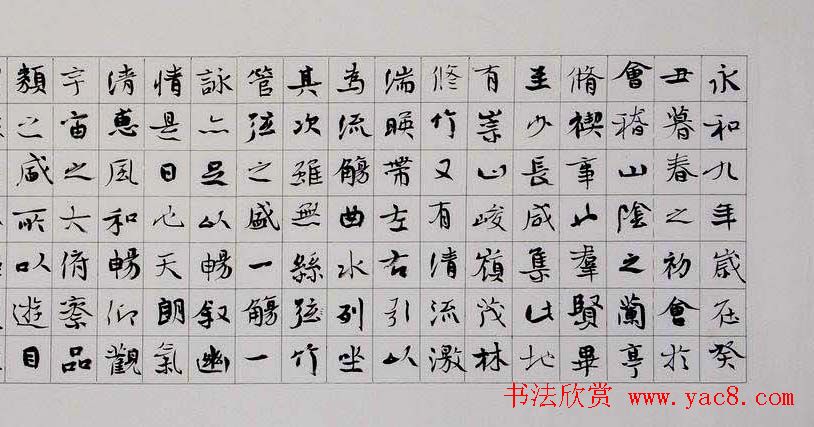 永和九年歲在癸
丑暮春之初會於
會稽山陰之蘭亭
脩禊事也羣賢畢
至少長咸集此地
有崇山峻嶺茂林
修竹又有清流激
湍暎帶左右引以
為流觴曲水列坐
其次雖無絲弦竹
管弦之盛一觴一
詠亦足以暢叙幽
情是日也天朗氣
清惠風和暢仰觀
宇宙之大俯察品
類之盛所以遊目
书法欣赏 www.yac8.com